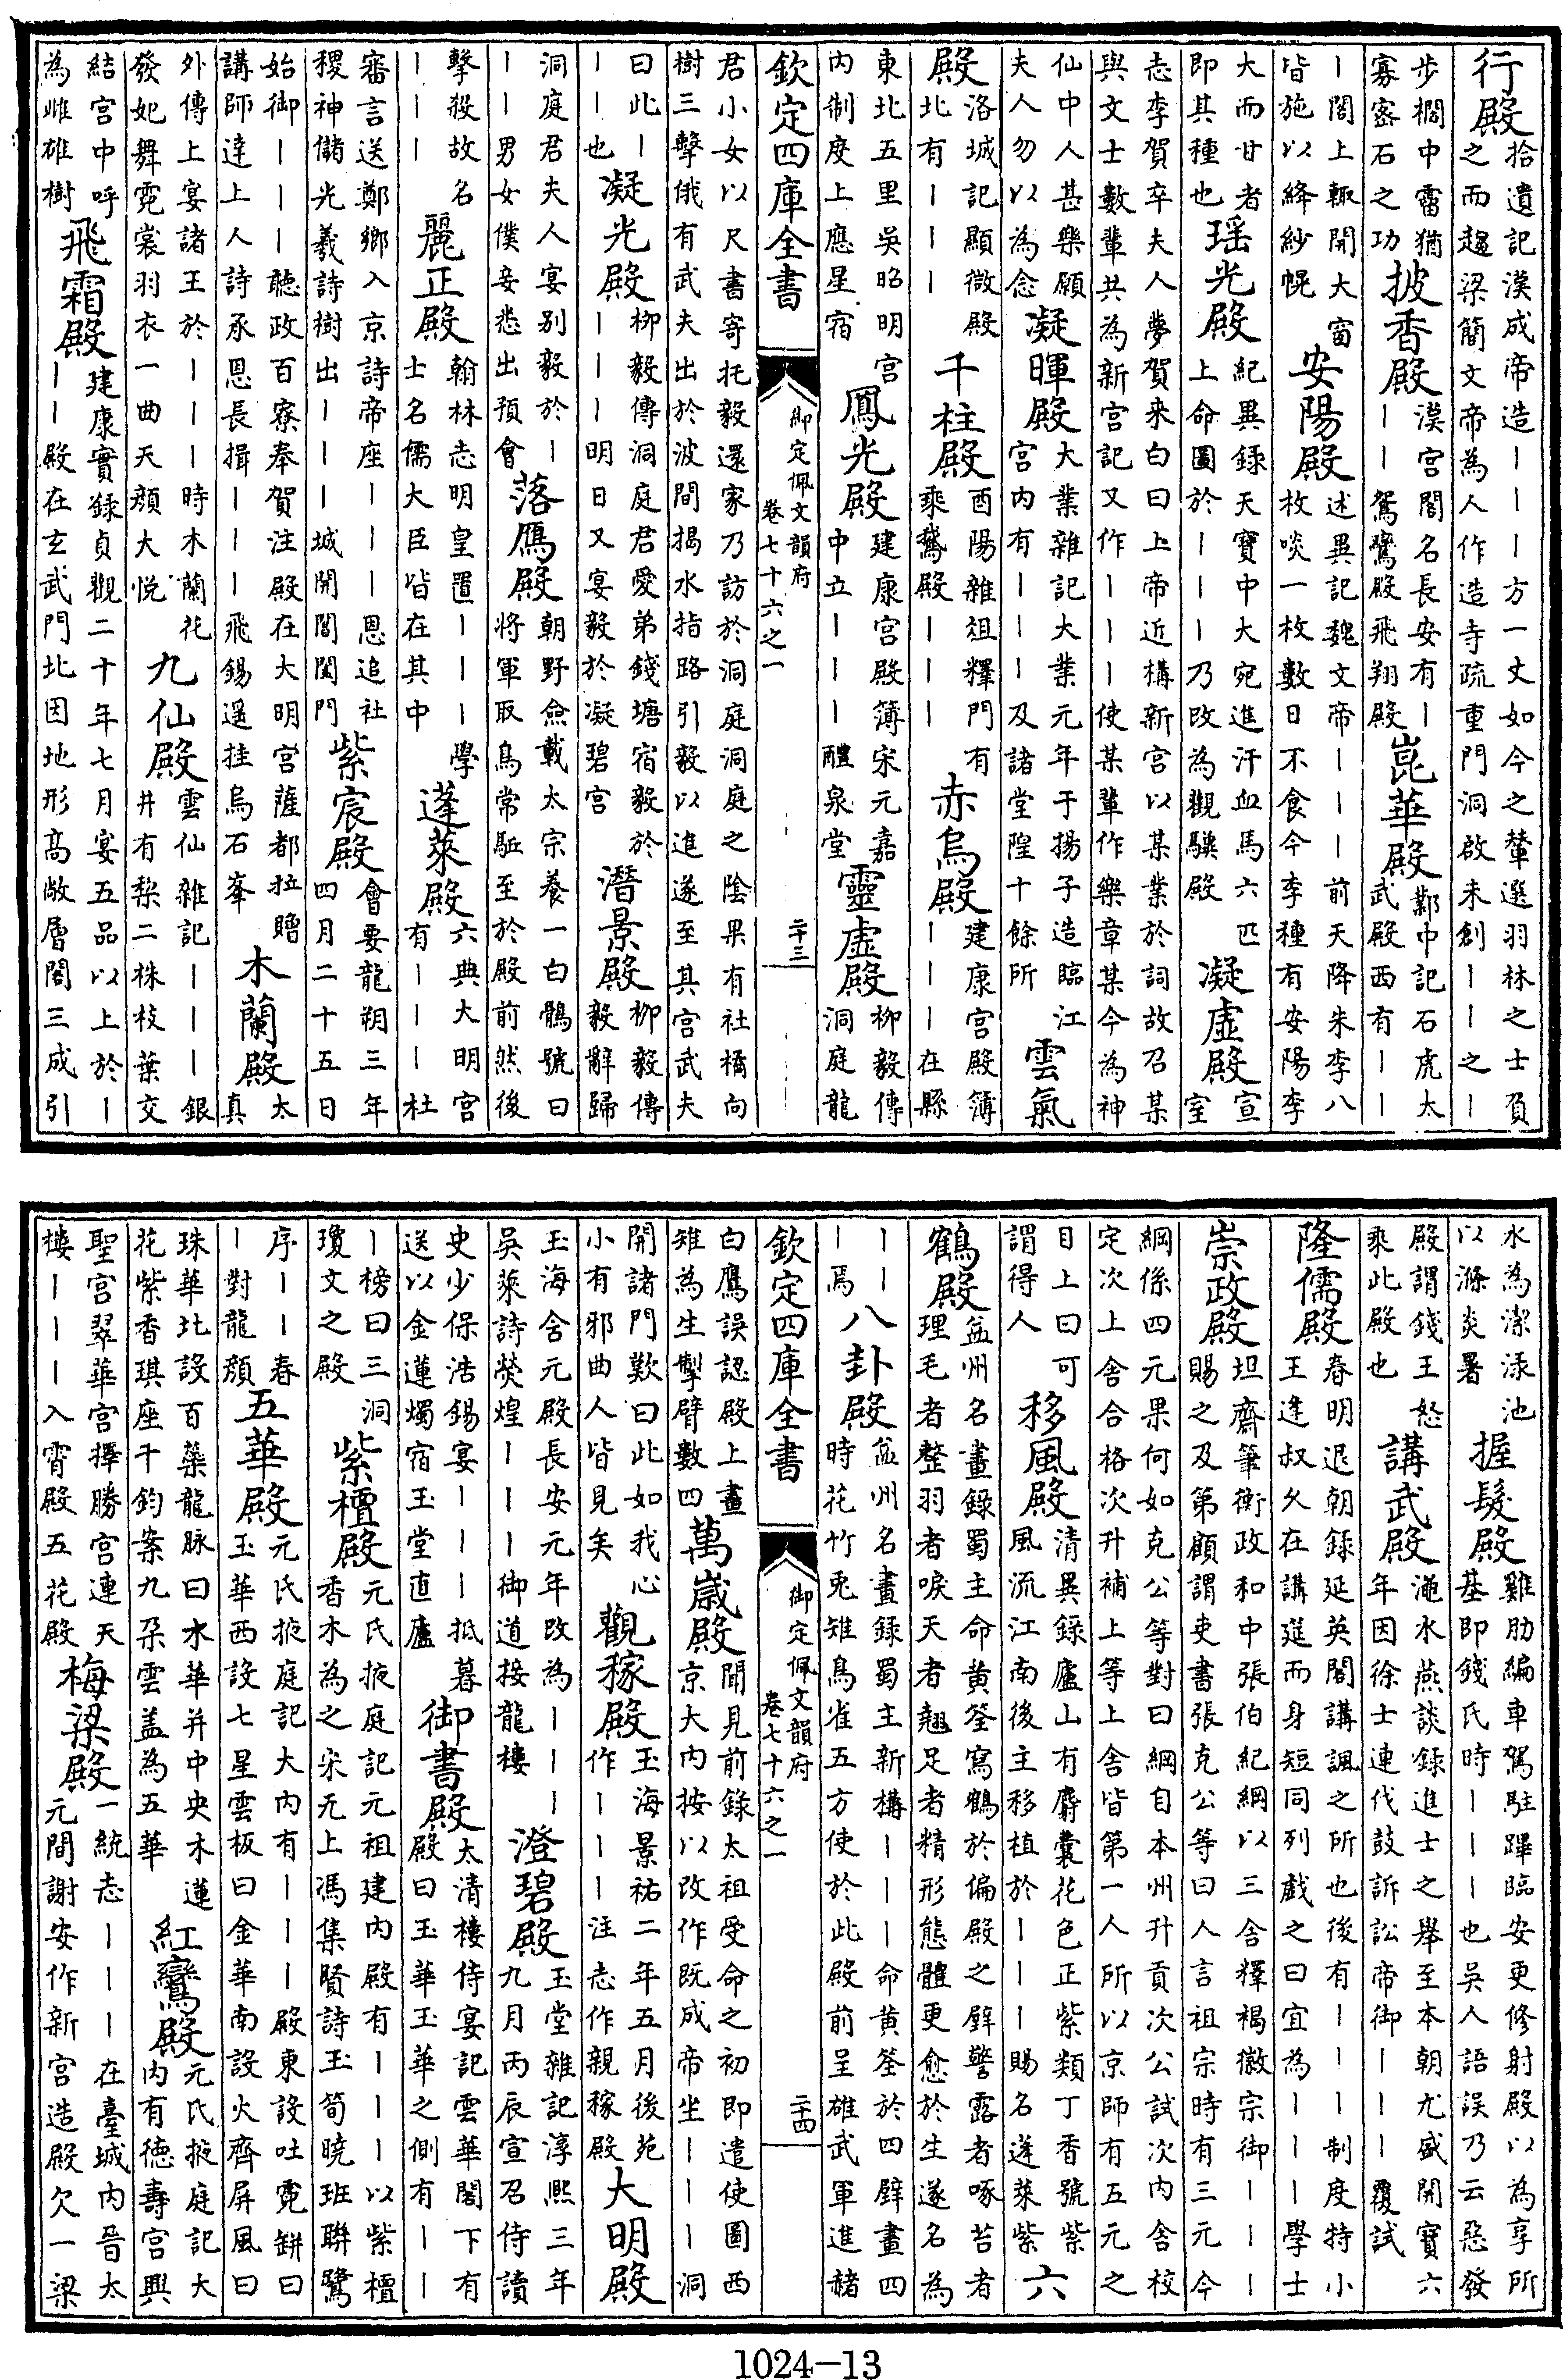 行殿拾遺記漢成帝造――方一丈如今之輦選羽林之士負之而趨梁簡文帝為人作造寺疏重門洞啟未創――之―
步櫩中霤猶寡密石之功披香殿漢宮閣名長安有―――鴛鸞殿飛翔殿崑華殿鄴中記石虎太武殿西有――
―閣上輙開大窗皆施以絳紗幌安陽殿述異記魏文帝―――前天降朱李八枚啖一枚數日不食今李種有安陽李
大而甘者即其種也瑶光殿紀異録天寶中大宛進汗血馬六匹上命圖於―――乃改為觀驥殿凝虚殿宣室
志李賀卒夫人夢賀来白曰上帝近構新宮以某業於詞故召某與文士數輩共為新宮記又作―――使某輩作樂章某今為神
仙中人甚樂願夫人勿以為念凝暉殿大業雜記大業元年于揚子造臨江宮内有―――及諸堂隍十餘所雲氣
殿洛城記顯微殿北有―――千柱殿酉陽雜俎釋門有乘鵞殿―――赤烏殿建康宮殿簿―――在縣
東北五里吳昭明宮内制度上應星宿鳳光殿建康宮殿簿宋元嘉中立―――醴泉堂靈虚殿柳毅傳洞庭龍
欽定四庫全書 御定佩文韻府 卷七十六之一 二十三
君小女以尺書寄托毅還家乃訪於洞庭洞庭之陰果有社橘向樹三擊俄有武夫出於波間揭水指路引毅以進遂至其宮武夫
曰此―――也凝光殿柳毅傳洞庭君愛弟錢塘宿毅於―――明日又宴毅於凝碧宮潛景殿柳毅傳毅辭歸
洞庭君夫人宴别毅於―――男女僕妾悉出預會落鴈殿朝野僉載太宗養一白鶻號曰將軍取鳥常驅至於殿前然後
擊殺故名―――麗正殿翰林志明皇置―――學士名儒大臣皆在其中蓬萊殿六典大明宮有―――杜
審言送鄭鄉入京詩帝座―――恩追社稷神儲光羲詩樹出―――城開閶闔門紫宸殿會要龍朔三年四月二十五日
始御―――聽政百寮奉賀注殿在大明宮薩都拉贈講師達上人詩承恩長揖―――飛錫遥挂烏石峯木蘭殿太真
外傳上宴諸王於―――時木蘭花發妃舞霓裳羽衣一曲天顔大悦九仙殿雲仙雜記―――銀井有梨二株枝葉交
結宮中呼為雌雄樹飛霜殿建康實録貞觀二十年七月宴五品以上於―――殿在玄武門北因地形高敞層閣三成引
水為潔淥池以滌炎暑握髮殿雞肋編車駕駐蹕臨安更修射殿以為享所基即錢氏時―――也吳人語誤乃云惡發
殿謂錢王怒乘此殿也講武殿澠水燕談録進士之舉至本朝尤盛開寶六年因徐士連伐鼓訴訟帝御―――覆試
隆儒殿春明退朝録延英閣講諷之所也後有―――制度特小王逢叔久在講筵而身短同列戲之曰宜為―――學士
崇政殿坦齋筆衡政和中張伯紀綱以三舍釋褐徽宗御―――賜之及第顧謂吏書張克公等曰人言祖宗時有三元今
綱係四元果何如克公等對曰綱自本州升貢次公試次内舍校定次上舍合格次升補上等上舍皆第一人所以京師有五元之
目上曰可謂得人移風殿清異録廬山有麝囊花色正紫類丁香號紫風流江南後主移植於―――賜名蓬萊紫六
鶴殿益州名畫録蜀主命黄筌寫鶴於偏殿之壁警露者啄苔者理毛者整羽者唳天者翹足者精形態體更愈於生遂名為
―――焉八卦殿益州名畫録蜀主新構―――命黄筌於四壁畫四時花竹兎雉鳥雀五方使於此殿前呈雄武軍進赭
欽定四庫全書 御定佩文韻府 卷七十六之一 二十四
白鷹誤認殿上畫雉為生掣臂數四萬歲殿聞見前録太祖受命之初即遣使圖西京大内按以改作既成帝坐―――洞
開諸門歎曰此如我心小有邪曲人皆見矣觀稼殿玉海景祐二年五月後苑作―――注志作親稼殿大明殿
玉海含元殿長安元年改為―――吳萊詩熒煌―――御道接龍樓澄碧殿玉堂雜記淳熙三年九月丙辰宣召侍讀
史少保浩錫宴―――抵暮送以金蓮燭宿玉堂直廬御書殿太清樓侍宴記雲華閣下有殿曰玉華玉華之側有――
―榜曰三洞瓊文之殿紫檀殿元氏掖庭記元祖建内殿有―――以紫檀香木為之宋无上馮集賢詩玉筍曉班聯鷺
序――春―對龍顔五華殿元氏掖庭記大内有―――殿東設吐霓缾曰玉華西設七星雲板曰金華南設火齊屏風曰
珠華北設百蘂龍脉曰水華并中央木蓮花紫香琪座千鈞案九朶雲盖為五華紅鸞殿元氏掖庭記大内有徳壽宮興
聖宮翠華宮擇勝宮連天樓―――入霄殿五花殿梅梁殿一統志―――在臺城内晉太元間謝安作新宮造殿欠一梁
1024-13